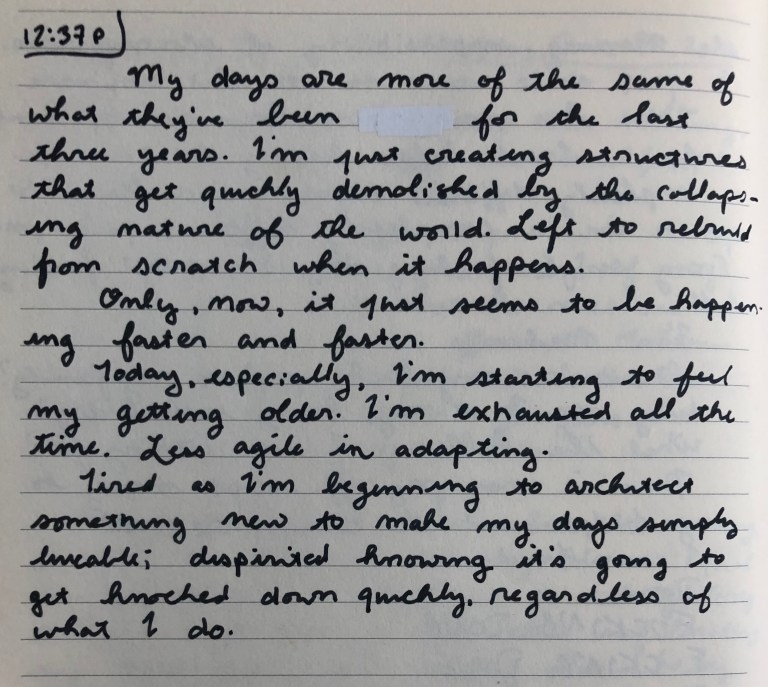 12:37 P
My days are more of the same of
what they've been for the last
three years. I'm just creating structures
that get quickly demolished by the collaps-
ing nature of the world. Left to rebuild
from scratch when it happens.
Only, now, it just seems to be happen-
ing faster and faster.
Today, especially, I'm starting to feel
my getting older. I'm exhausted all the
time. Less agile in adapting.
Tired as I'm beginning to architect
something new to make my days simply
liveable; dispirited knowing it's going to
get knocked down quickly, regardless of
what I do.